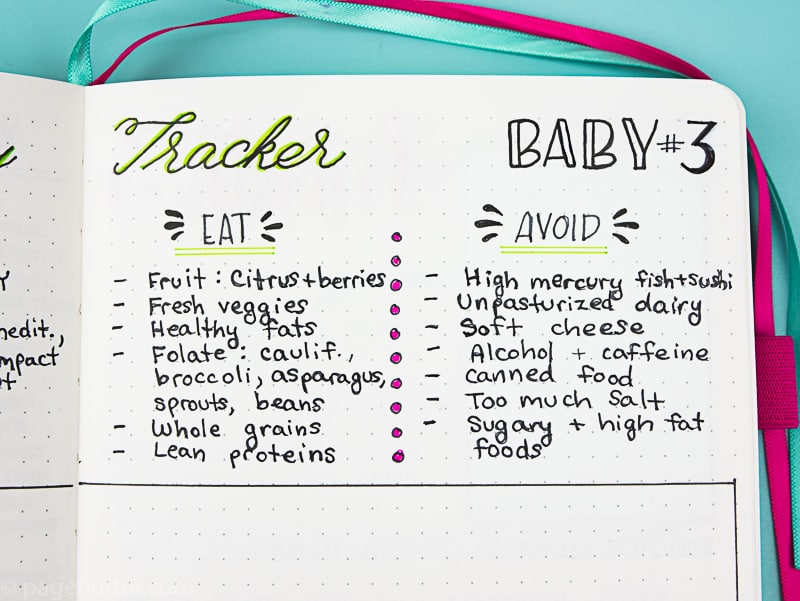 Tracker
BABY #3
EAT
- Fruit : Citrus + berries
- Fresh veggies
- Healthy fats
- Folate : caulif.,
broccoli, asparagus,
sprouts, beans
- Whole grains
- Lean proteins
AVOID
- High mercury fish + sushi
- Unpasturized dairy
- Soft cheese
- Alcohol + caffeine
- canned food
- Too much Salt
- Sugary + high fat
foods
© pageflutter.com